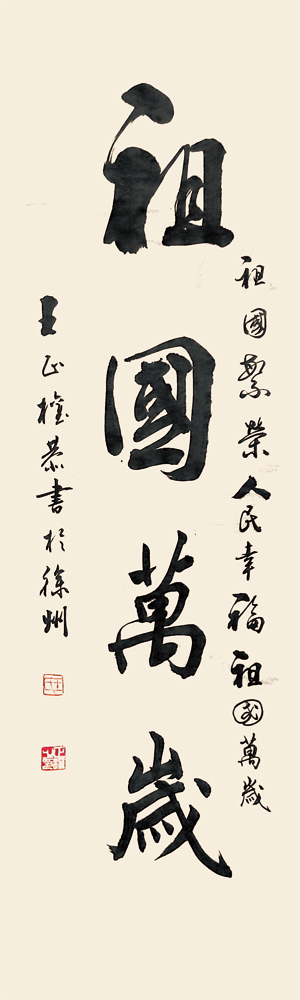 祖國繁榮人民幸福祖國萬歲
祖國萬歲
王正權恭書於徐州